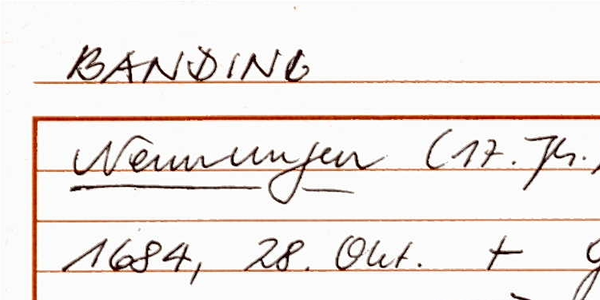 BANDING
Nennungen (17. Jh.)
1684, 28. Okt. +